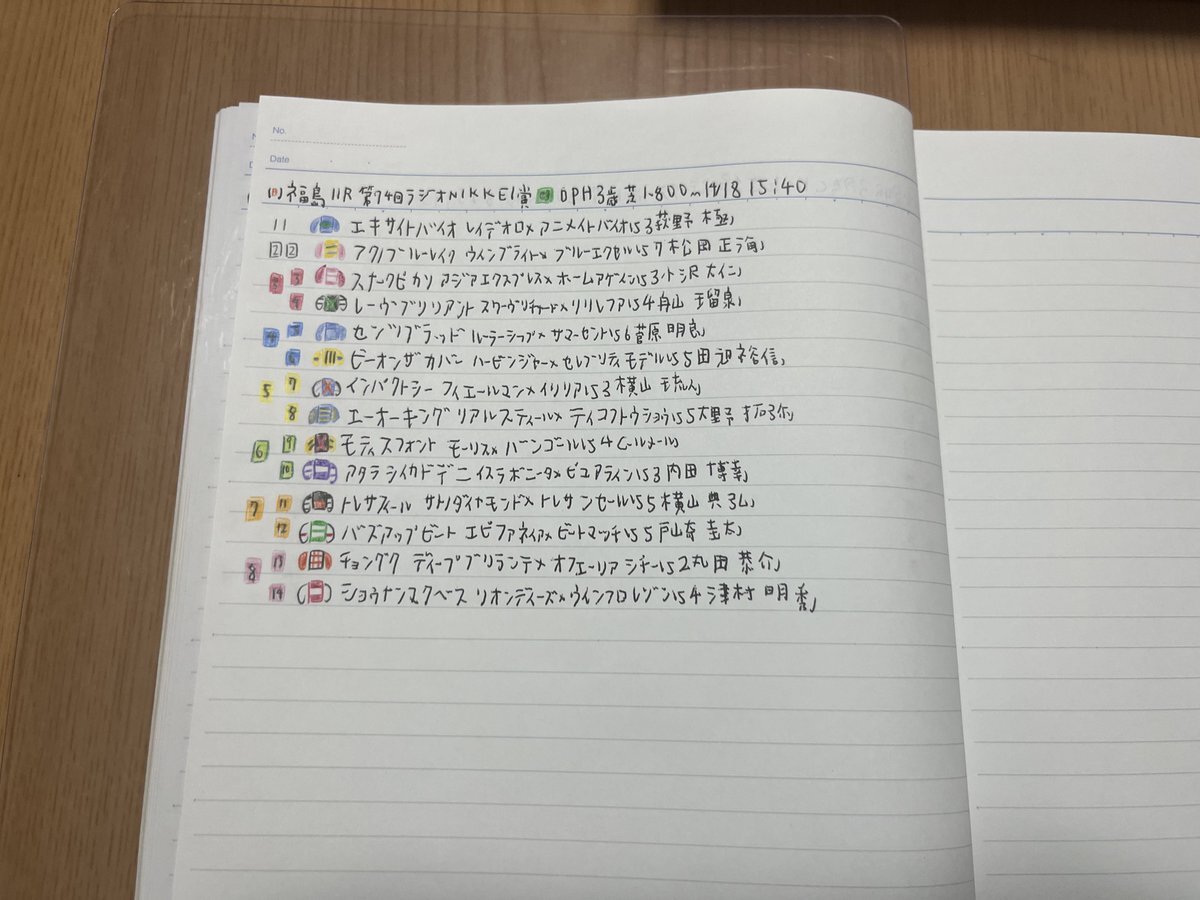 No.
Date
(日)福島11R 第74回ラジオNIKKEI賞 G3 OPH3歳 芝1.800m 14/18 15:40
11 エキサイトバイオ レイデオロ×アニメイトバイオ153荻野 極」
22 アクノブルーレイク ウインブライト×ブルーエクセル157松岡 正海」
3 3 スナークピカソ アジアエクスプレス×ホームアゲイン153小沢 大仁」
4 レーヴブリリアント スワーヴリチャード×リリレファ154舟山 瑠泉」
4 5 センツブラッド ルーラーシップ×サマーセント156菅原 明良」
6 ビーオンザカバー ハービンジャー×セレブリティモデル155田辺 裕信」
5 7 インパクトシー フィエールマン×イリリア153横山 琉人」
8 エーオーキング リアルスティール×ティコフトウショウ155大野 拓弥」
6 9 モティスフォント モーリス×バンゴール154ルメール
10 アタラシイカドデ デニ イスラボニータ×ピュアライン153内田 博幸」
7 11 トレサフィール サトノダイヤモンド×トレサンセール155横山 典弘」
12 バズアップビート エピファネイア×ビートマッチ155戸崎 圭太」
8 13 チョングク ディープブリランテ×オフェーリアシチー152丸田 恭介」
14 ショウナンマクベス リオンディーズ×ウインフロレゾン154津村 明秀」